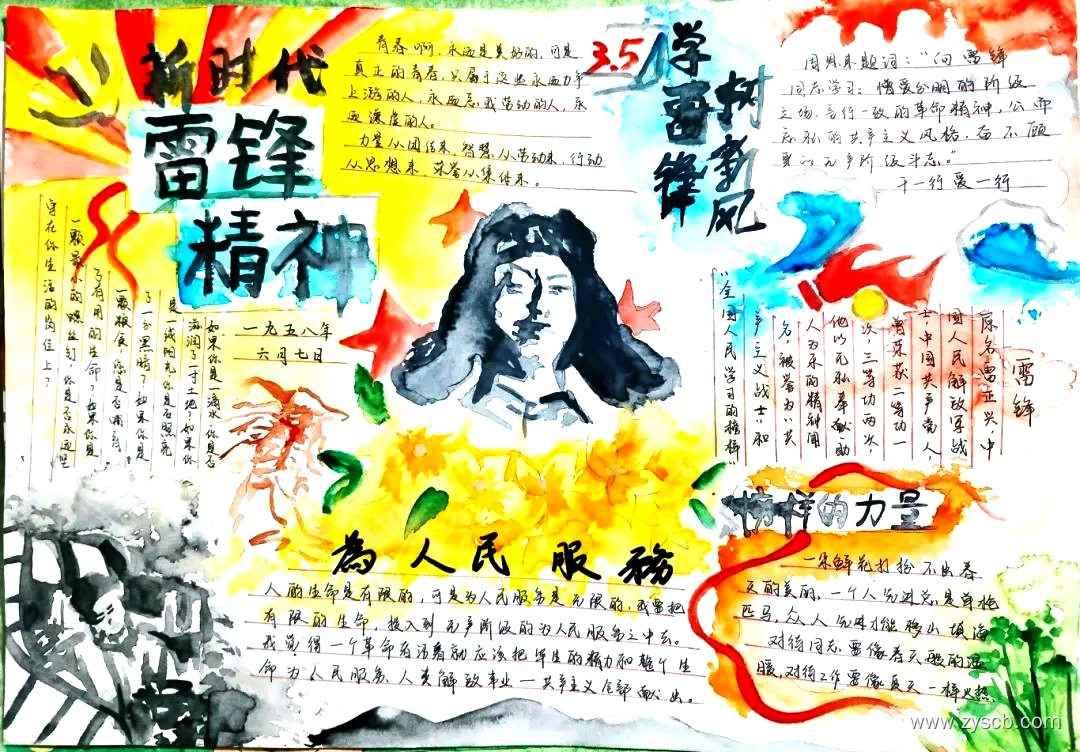 新时代
雷锋
精神
青春啊，永远是美好的，可是
真正的青春，只属于这些永远力争
上游的人，永远忘我劳动的人，永
远谦虚的人。
力量从团结来，智慧从劳动来，行动
从思想来，荣誉从集体来。
3.5
学雷锋
树新风
周恩来题词：“向雷锋
同志学习：憎爱分明的阶级
立场，言行一致的革命精神，公而
忘私的共产主义风格，奋不顾
身的无产阶级斗志。”
干一行爱一行
一九五八年
六月七日
如果你是一滴水，你是否
滋润了一寸土地？如果你
是一线阳光，你是否照亮
了一分黑暗？如果你是
一颗粮食，你是否哺育
了有用的生命？如果你是
一颗最小的螺丝钉，你是否永远坚
守在你生活的岗位上？
雷锋
原名雷正兴，中
国人民解放军战
士，中国共产党人
曾荣获二等功一
次，三等功两次，
他以无私奉献助
人为乐的精神闻
名，被誉为“共
产主义战士”和
“全国人民学习的榜样”
榜样的力量
一朵鲜花打扮不出春
天的美丽，一个人先进总是单枪
匹马，众人先进才能移山填海
对待同志要像春天般的温
暖，对待工作要像夏天一样火热
為人民服務
人的生命是有限的，可是为人民服务是无限的，我要把
有限的生命，投入到无产阶级的为人民服务之中去。
我觉得一个革命者活着就应该把毕生的精力和整个生
命为人民服务、人类解放事业—共产主义全部献出。
www.zyscb.com